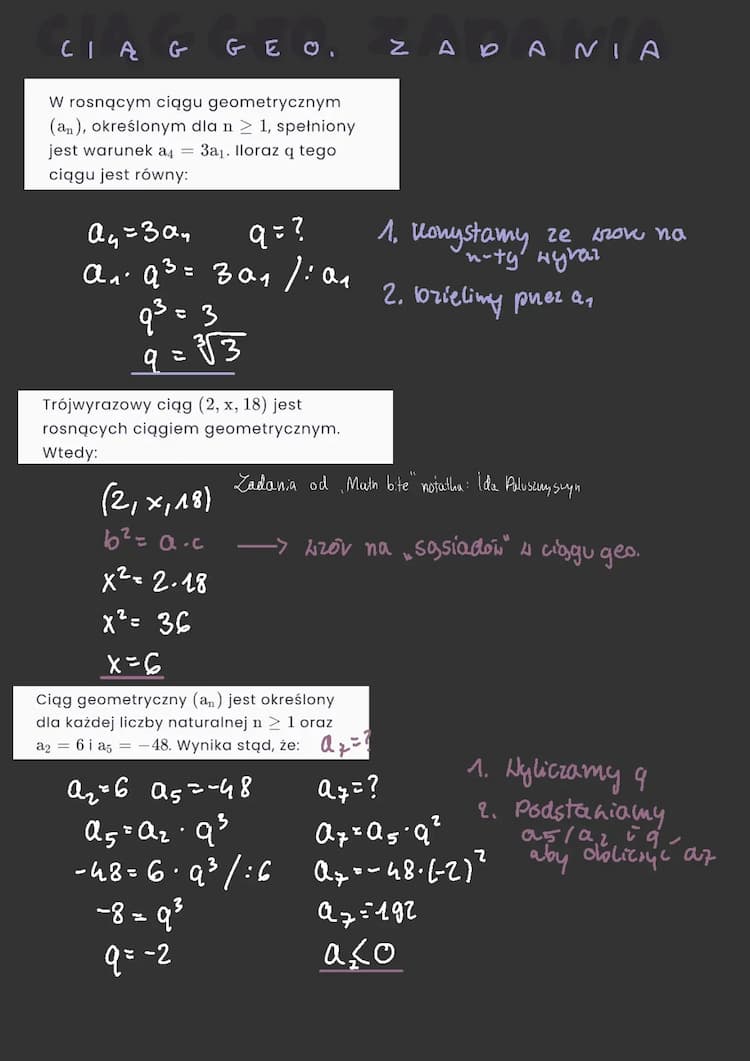 CIĄG GEO. ZADANIA
CIĄG GEO. ZADANIA
W rosnącym ciągu geometrycznym
(aₙ), określonym dla n ≥ 1, spełniony
jest warunek a₄ = 3a₁. Iloraz q tego
ciągu jest równy:
a₄=3a₁ q=?
a₁·q³=3a₁ /:a₁
q³=3
q=∛3
1. Korzystamy ze wzoru na
n-ty wyraz
2. Dzielimy przez a₁
Trójwyrazowy ciąg (2, x, 18) jest
rosnących ciągiem geometrycznym.
Wtedy:
Zadania od „Math bite" notatka: Ida
(2,x,18)
b²=a·c → wzór na „sąsiadów" w ciągu geo.
x²=2·18
x²=36
x=6
Ciąg geometryczny (aₙ) jest określony
dla każdej liczby naturalnej n ≥ 1 oraz
a₂ = 6 i a₅ = −48. Wynika stąd, że: a₇=?
a₂=6 a₅=-48
a₅=a₂·q³
-48=6·q³/:6
-8=q³
q=-2
a₇=?
a₇=a₅·q²
a₇=-48·(-2)²
a₇=-192
a₇<0
1. Wyliczamy q
2. Podstawiamy
a₅/a₂ i q,
aby obliczyć a₇